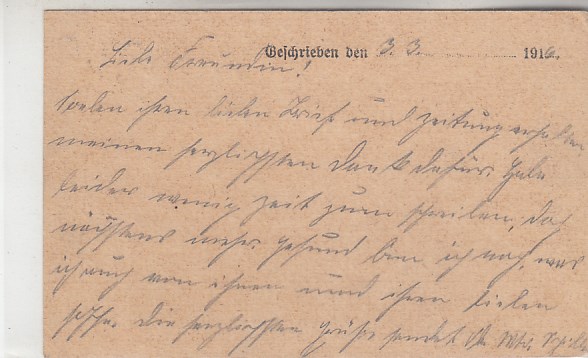 Geschrieben den 3. 3. 1916.
Liebe Freundin!
Soeben ihren lieben Brief und Zeitung erhalten
meinen herzlichsten Dank dafür. Habe
leider wenig Zeit zum schreiben, das
nächstens mehr. Gesund bin ich noch, was
ich auch von ihnen und ihren lieben
hoffe. Die herzlichsten Grüße sendet